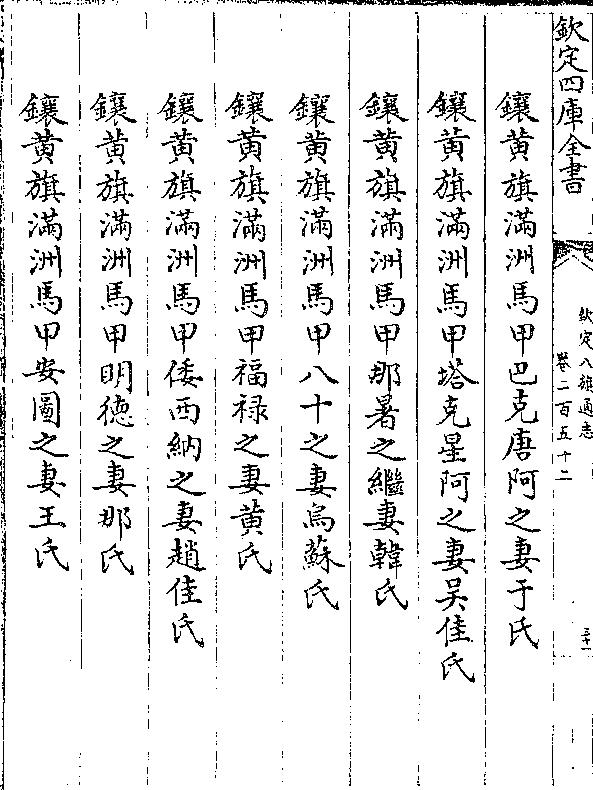 欽定四庫全書
欽定八旗通志
卷二百五十二
三十一
鑲黄旗滿洲馬甲巴克唐阿之妻于氏
鑲黄旗滿洲馬甲塔克星阿之妻吴佳氏
鑲黄旗滿洲馬甲那暑之繼妻韓氏
鑲黄旗滿洲馬甲八十之妻烏蘇氏
鑲黄旗滿洲馬甲福禄之妻黄氏
鑲黄旗滿洲馬甲倭西納之妻趙佳氏
鑲黄旗滿洲馬甲明徳之妻那氏
鑲黄旗滿洲馬甲安圖之妻王氏